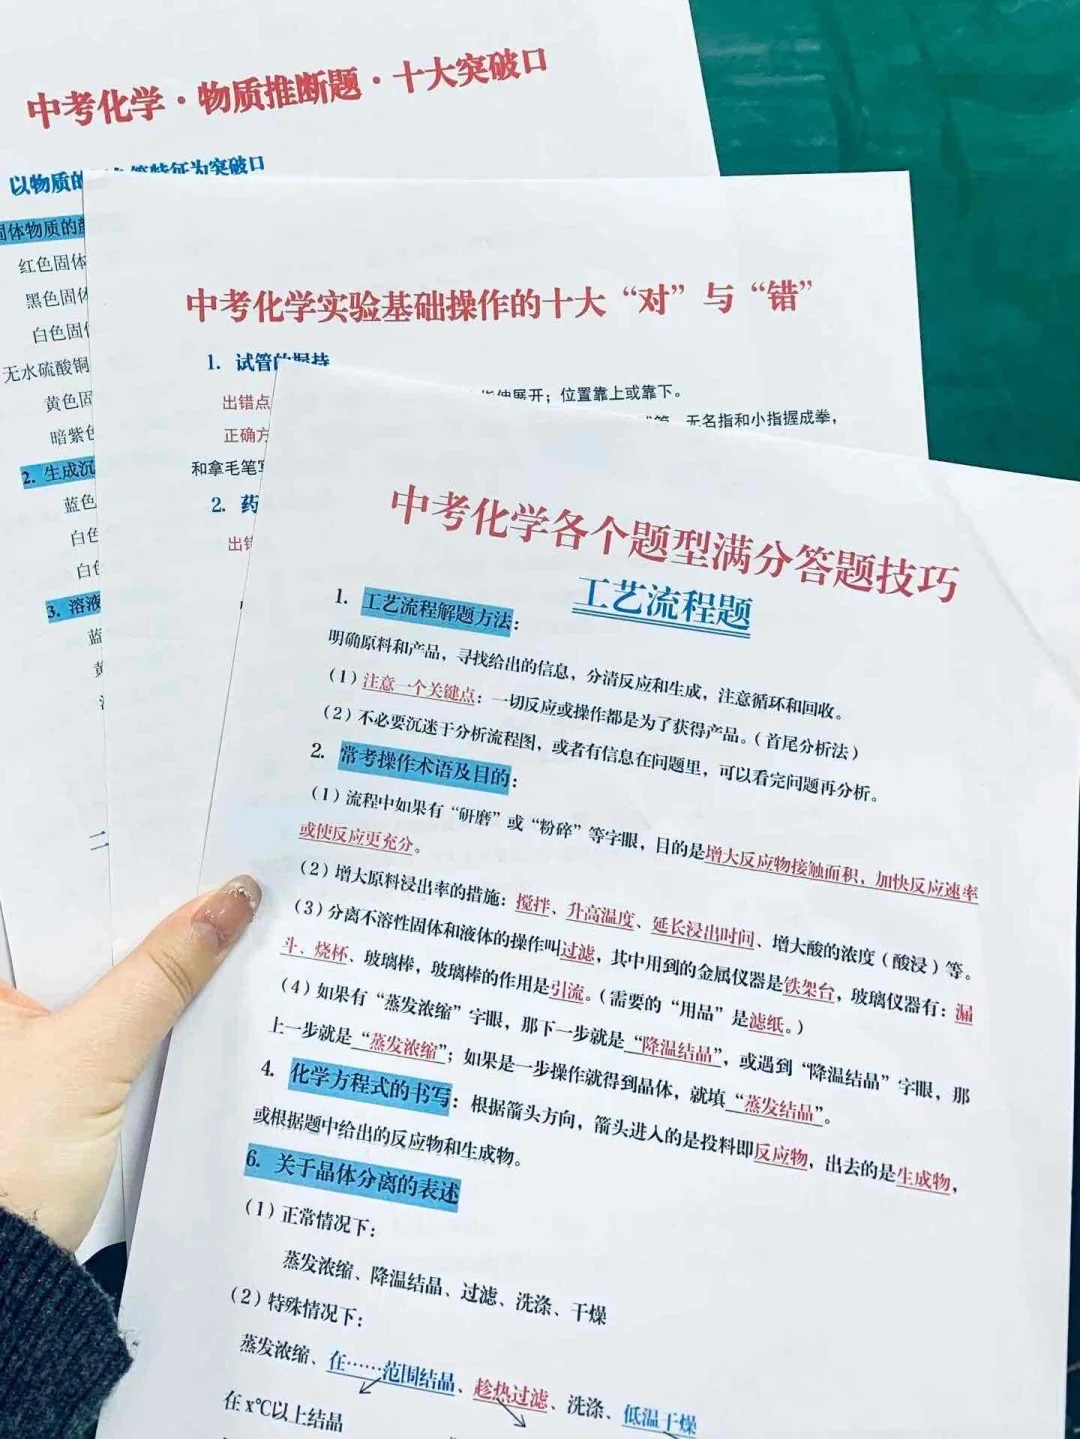 中考化学·物质推断题·十大突破口
以物质的 特征为突破口
固体物质的
红色固体
黑色固体
白色固
无水硫酸铜
黄色固
暗紫色
2. 生成沉
蓝色
白色
白色
3. 溶液
蓝
黄
二
中考化学实验基础操作的十大“对”与“错”
1. 试管的握持
出错点
展开；位置靠上或靠下。
正确方
无名指和小指握成拳，
和拿毛笔写
2. 药
出错
中考化学各个题型满分答题技巧
工艺流程题
1. 工艺流程解题方法：
明确原料和产品，寻找给出的信息，分清反应和生成，注意循环和回收。
（1）注意一个关键点：一切反应或操作都是为了获得产品。（首尾分析法）
（2）不必要沉迷于分析流程图，或者有信息在问题里，可以看完问题再分析。
2. 常考操作术语及目的：
（1）流程中如果有“研磨”或“粉碎”等字眼，目的是增大反应物接触面积，加快反应速率
或使反应更充分。
（2）增大原料浸出率的措施：搅拌、升高温度、延长浸出时间、增大酸的浓度（酸浸）等。
（3）分离不溶性固体和液体的操作叫过滤，其中用到的金属仪器是铁架台，玻璃仪器有：漏
斗、烧杯、玻璃棒，玻璃棒的作用是引流。（需要的“用品”是滤纸。）
（4）如果有“蒸发浓缩”字眼，那下一步就是“降温结晶”，或遇到“降温结晶”字眼，那
上一步就是“蒸发浓缩”；如果是一步操作就得到晶体，就填“蒸发结晶”。
4. 化学方程式的书写：根据箭头方向，箭头进入的是投料即反应物，出去的是生成物，
或根据题中给出的反应物和生成物。
6. 关于晶体分离的表述
（1）正常情况下：
蒸发浓缩、降温结晶、过滤、洗涤、干燥
（2）特殊情况下：
蒸发浓缩、在……范围结晶、趁热过滤、洗涤、低温干燥
在x℃以上结晶